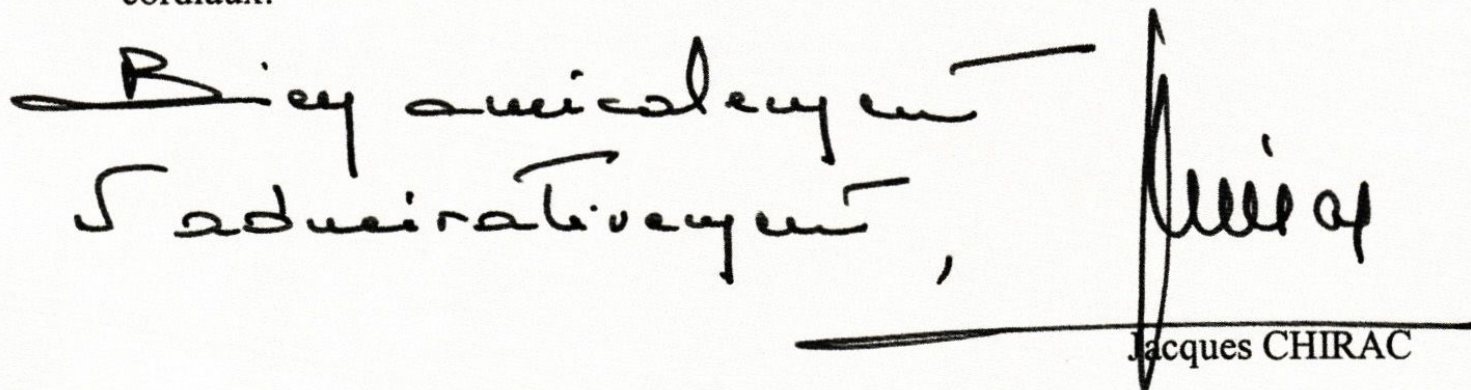 cordiaux.
Bien amicalement
et admirativement,
Jacques CHIRAC